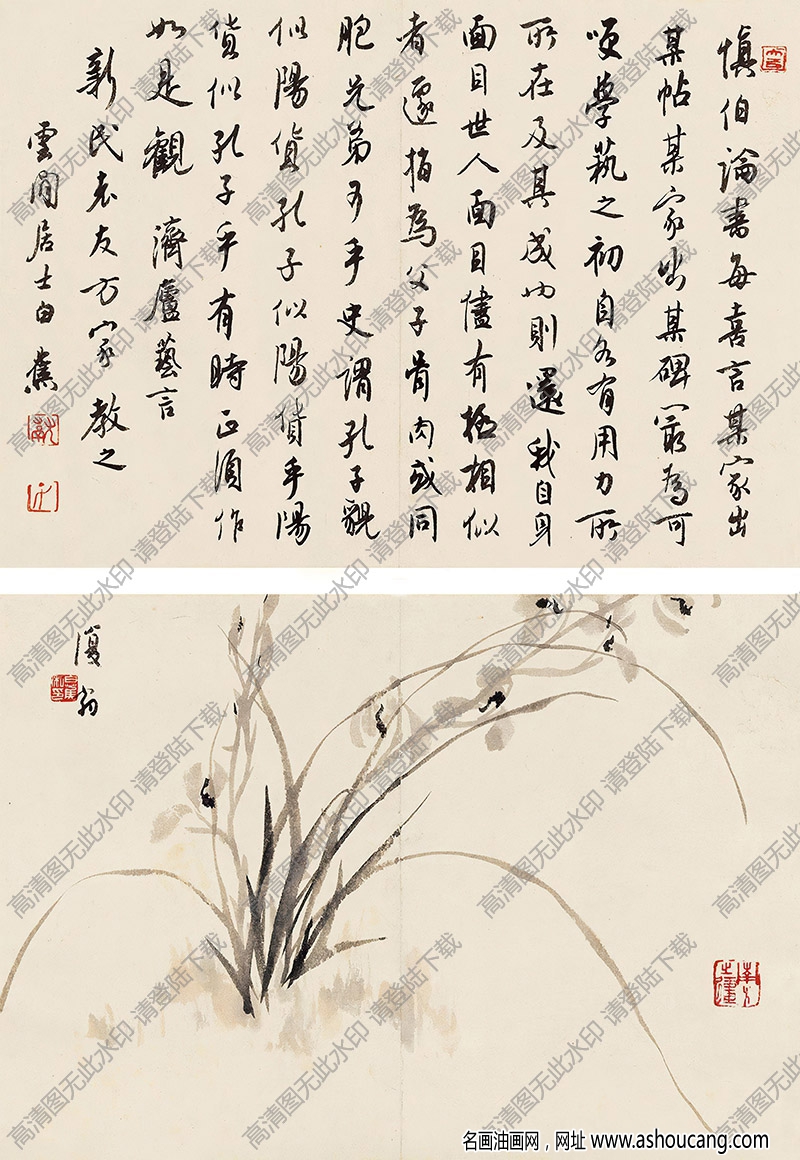 慎伯論書每喜言某家出
某帖某家出某碑最為可
哂學藝之初自各有用力所
所在及其成功則還我自身
面目世人面目儘有極相似
者遽指為父子骨肉或同
胞兄弟可乎史謂孔子貌
似陽貨孔子似陽貨乎陽
貨似孔子乎有時正須作
如是觀 濟廬藝言
新民老友方家教之
雲間居士白蕉
復翁
高清图无此水印 请登陆下载
名画油画网，网址 www.ashoucang.com